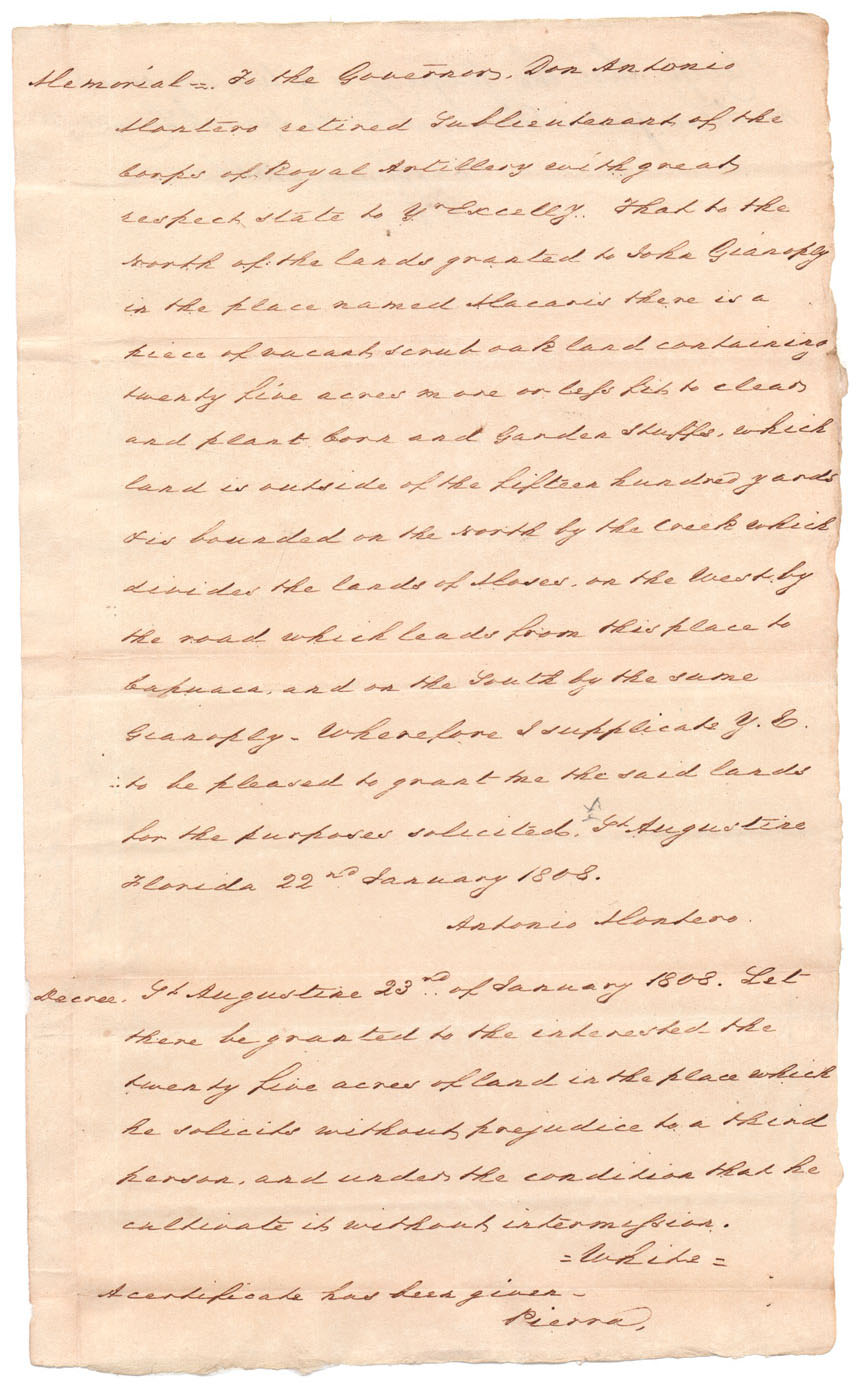 Memorial =. To the Governor, Don Antonio
Montero retired Sublieutenant of the
Corps of Royal Artillery with great
respect state to Yr Excelly. That to the
North of the lands granted to John Gianoply
in the place named Macaris there is a
piece of vacant scrub oak land containing
twenty five acres more or less fit to clear
and plant Corn and Garden stuffs, which
land is outside of the fifteen hundred yards
& is bounded on the North by the Creek which
divides the lands of Moses, on the West by
the road which leads from this place to
Capuaca, and on the South by the same
Gianoply - Wherefore I supplicate Y. E.
to be pleased to grant me the said lands
for the purposes solicited. St Augustine
Florida 22nd January 1808.
Antonio Montero.
Decree. St Augustine 23rd of January 1808. Let
there be granted to the interested the
twenty five acres of land in the place which
he solicits without prejudice to a third
person, and under the condition that he
cultivate it without intermission.
= White =
A certificate has been given -
Pierra,